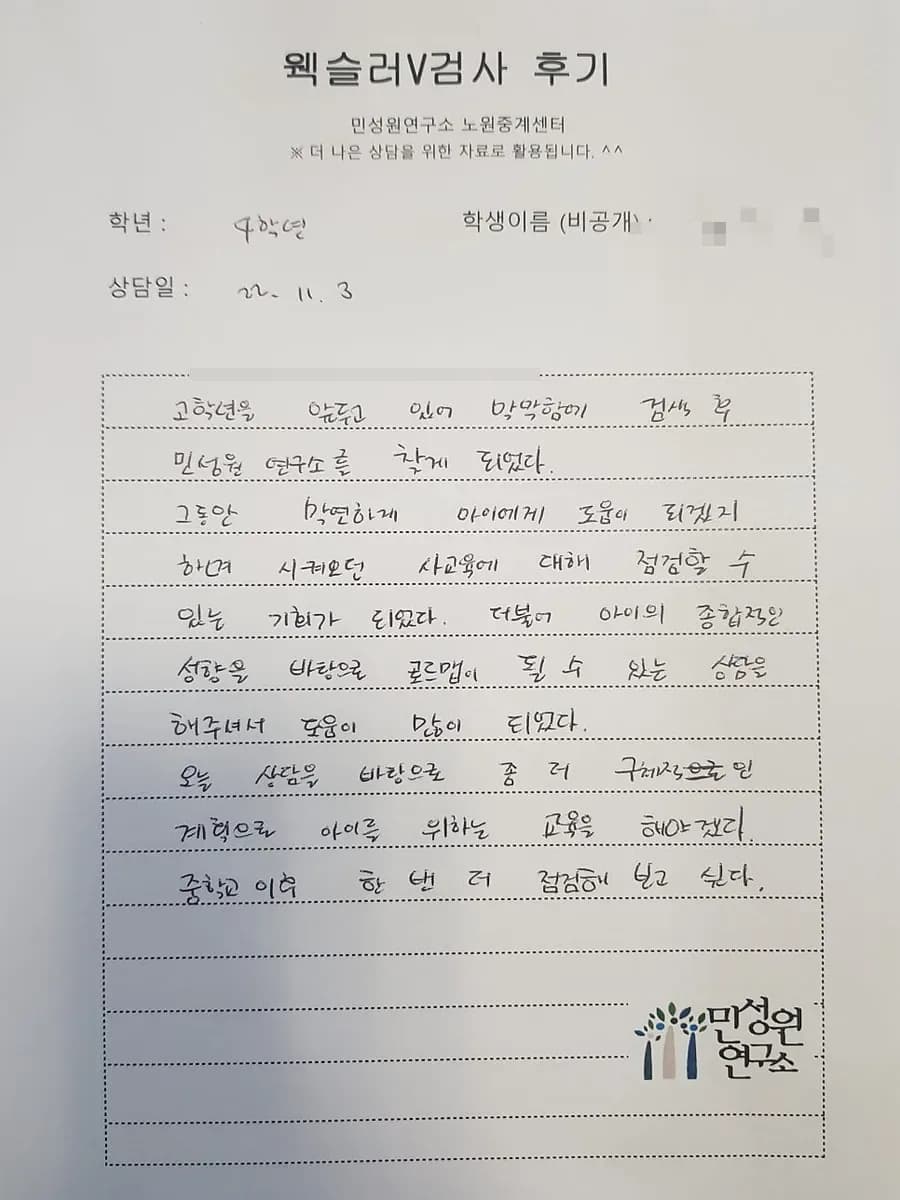 웩슬러V검사 후기
민성원연구소 노원중계센터
※ 더 나은 상담을 위한 자료로 활용됩니다. ^^
학년 : 4학년 학생이름 (비공개) :
상담일 : 22. 11. 3
고학년을 앞두고 있어 막막함에 검색 후
민성원 연구소를 찾게 되었다.
그동안 막연하게 아이에게 도움이 되겠지
하며 시켜오던 사교육에 대해 점검할 수
있는 기회가 되었다. 더불어 아이의 종합적인
성향을 바탕으로 로드맵이 될 수 있는 상담을
해주셔서 도움이 많이 되었다.
오늘 상담을 바탕으로 좀 더 구체적인
계획으로 아이를 위하는 교육을 해야겠다.
중학교 이후 한 번 더 점검해 보고 싶다.
민성원
연구소